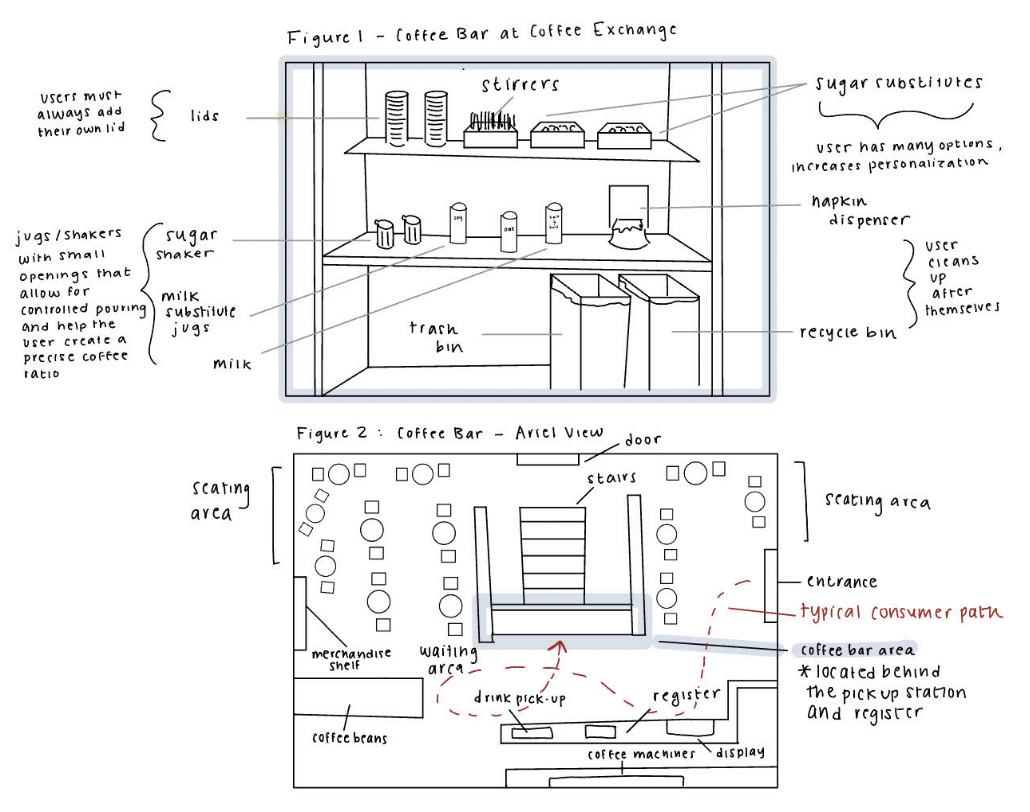 Figure 1 - Coffee Bar at Coffee Exchange
users must
always add
their own lid
lids
stirrers
sugar substitutes
user has many options,
increases personalization
napkin
dispenser
user
cleans
up
after
themselves
jugs/shakers
with small
openings that
allow for
controlled pouring
and help the
user create a
precise coffee
ratio
sugar
shaker
milk
substitute
jugs
milk
soy
oat
trash
bin
recycle bin
Figure 2 : Coffee Bar - Ariel View
door
stairs
seating
area
seating area
entrance
typical consumer path
merchandise
shelf
waiting
area
coffee bar area
* located behind
the pick up station
and register
drink pick-up
register
coffee beans
coffee machines
display